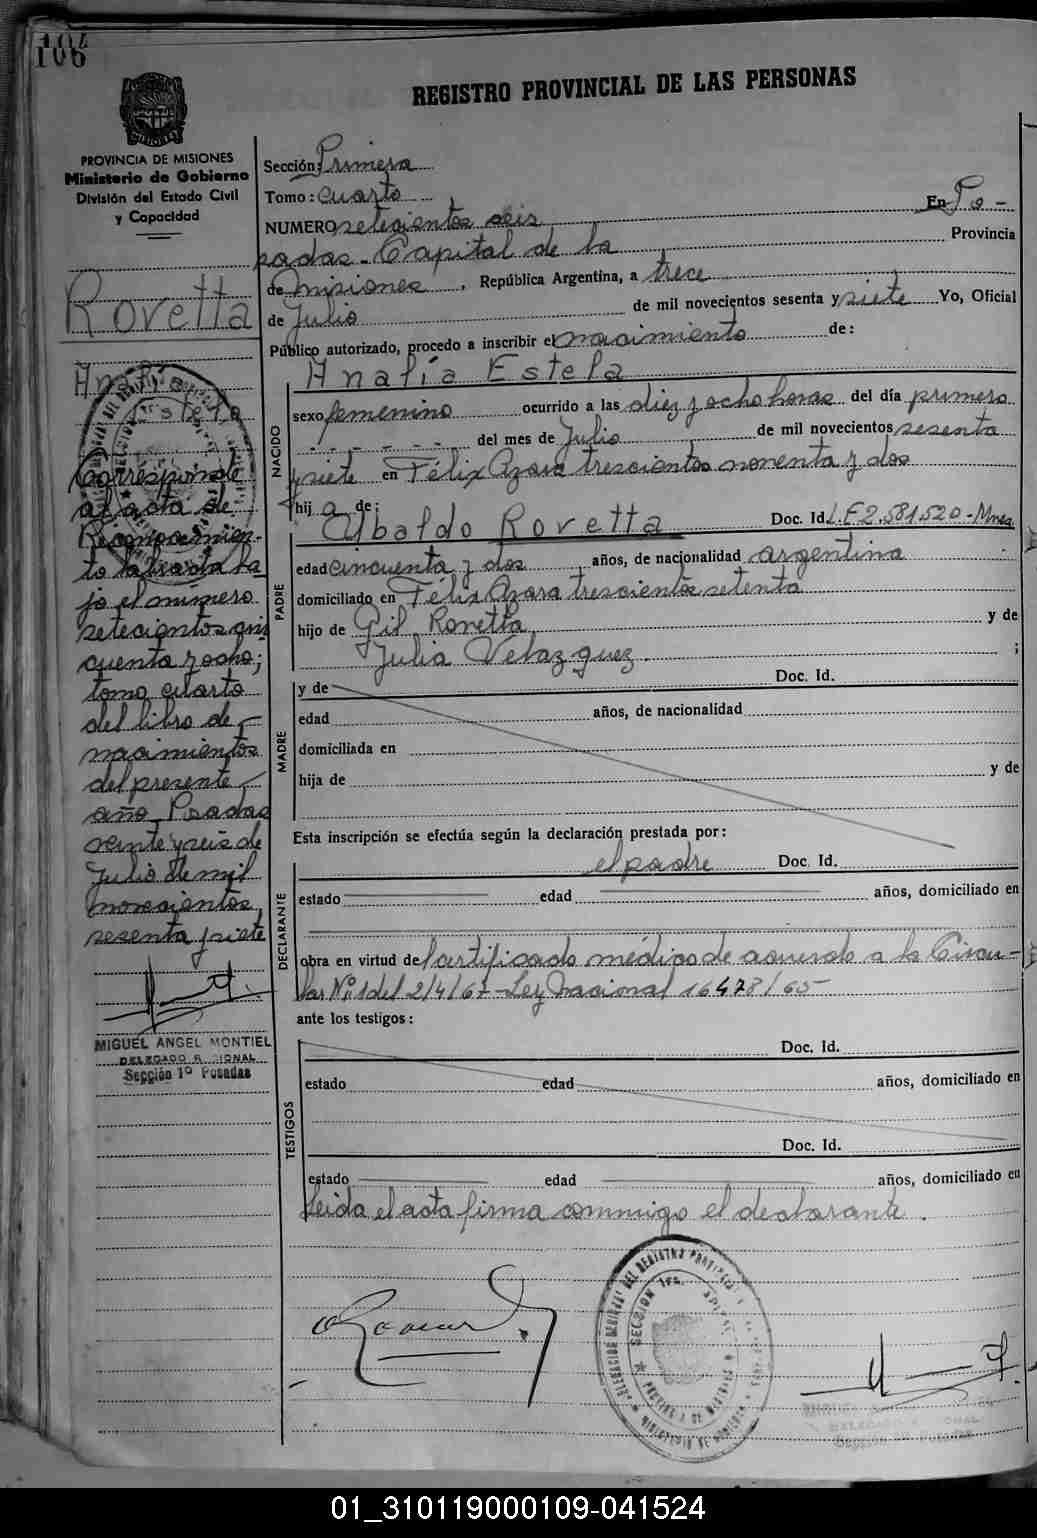 106
REGISTRO PROVINCIAL DE LAS PERSONAS
PROVINCIA DE MISIONES
Ministerio de Gobierno
División del Estado Civil
y Capacidad
Sección: Primera
Tomo: cuarto
NUMERO setecientos seis En Po-
sadas - Capital de la Provincia
de Misiones, República Argentina, a trece
de Julio de mil novecientos sesenta y siete Yo, Oficial
Público autorizado, procedo a inscribir el nacimiento de:
Analía Estela
NACIDO
sexo femenino ocurrido a las diez y ocho horas del día primero
del mes de Julio de mil novecientos sesenta
y siete en Félix Azara trescientos noventa y dos
hija de:
Ubaldo Rovetta Doc. Id. L.E 2.581.520 - Mnes
PADRE
edad cincuenta y dos años, de nacionalidad argentina
domiciliado en Félix Azara trescientos setenta
hijo de Gil Rovetta y de
Julia Velazquez. ;
MADRE
y de Doc. Id.
edad años, de nacionalidad
domiciliada en
hija de y de
Esta inscripción se efectúa según la declaración prestada por:
DECLARANTE
el padre Doc. Id.
estado edad años, domiciliado en
obra en virtud de certificado médico de acuerdo a la Circu-
lar Nº 1 del 2/4/67 - Ley Nacional 16478/65
ante los testigos:
TESTIGOS
Doc. Id.
estado edad años, domiciliado en
Doc. Id.
estado edad años, domiciliado en
Leida el acta firma conmigo el declarante.
Rovetta
Analía
Estela
Corresponde
al acta de
Reconocimien-
to labrada ba-
jo el numero
setecientos cin
cuenta y ocho;
tomo cuarto
del libro de
nacimientos
del presente
año - Posadas
veinte y seis de
Julio de mil
novecientos
sesenta y siete
MIGUEL ANGEL MONTIEL
DELEGADO REGIONAL
Sección 1º Posadas
SECCION 1ra.
MINISTERIO DE GOBIERNO
Sección 1º Posadas
01_310119000109-041524